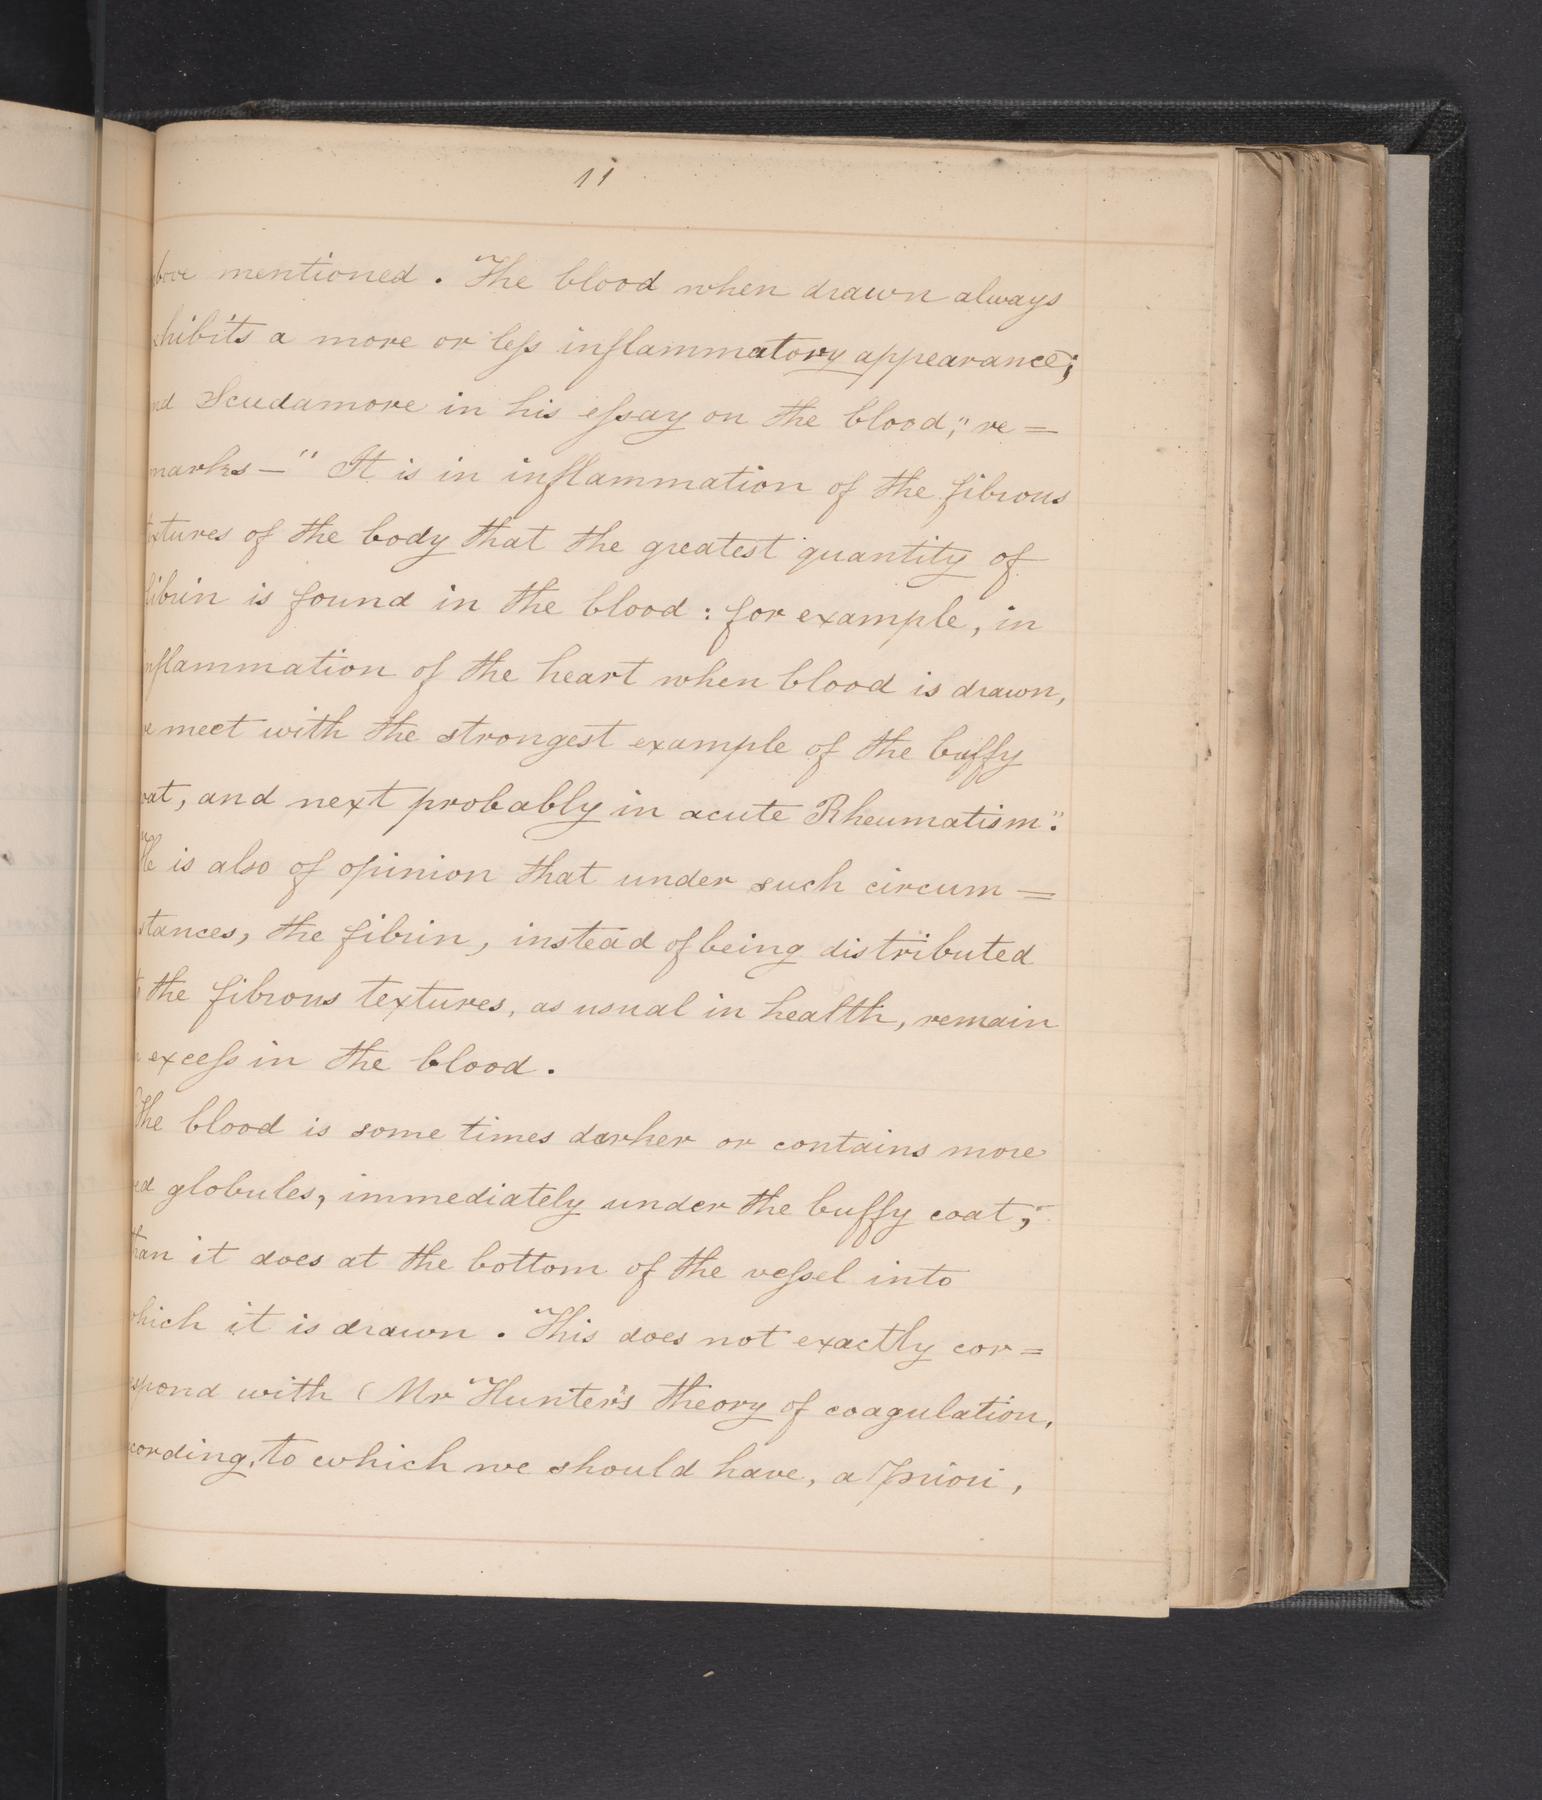 11
bove mentioned. The blood when drawn always
hibits a more or leſs inflammatory appearance;
nd Scudamore in his eſsay on the blood," re=
marks—" It is in inflammation of the fibrous
xtures of the body that the greatest quantity of
fibrin is found in the blood: for example, in
nflammation of the heart when blood is drawn,
e meet with the strongest example of the buffy
oat, and next probably in acute Rheumatism."
He is also of opinion that under such circum=
stances, the fibrin, instead of being distributed
the fibrous textures, as usual in health, remain
exceſs in the blood.
The blood is some times darker or contains more
ed globules, immediately under the buffy coat,
than it does at the bottom of the veſsel into
which it is drawn. This does not exactly cor=
spond with Mr Hunter's theory of coagulation,
cording, to which we should have, a priori,